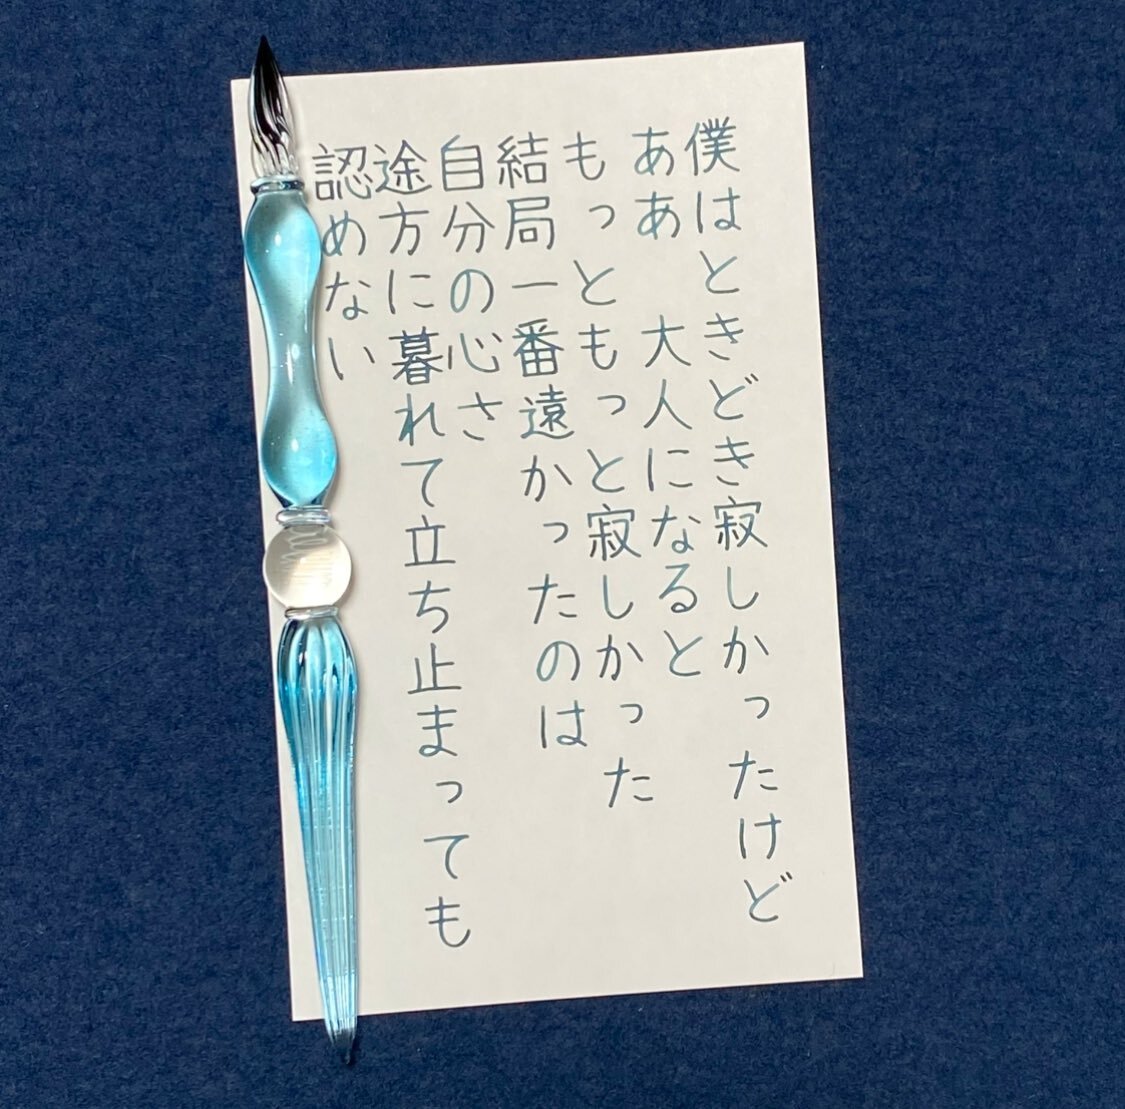 僕はときどき寂しかったけど
ああ 大人になると
もっともっと寂しかった
結局一番遠かったのは
自分の心さ
途方に暮れて立ち止まっても
認めない